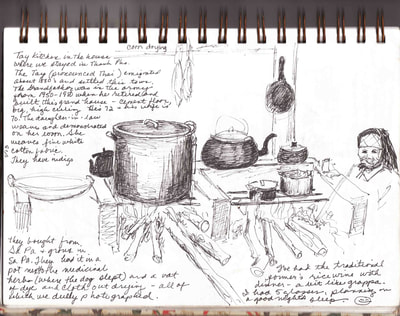 corn drying
Tay kitchen in the house
where we stayed in Thanh Phu.
The Tay (pronounced Thai) emigrated
about 1880's and settled this town.
The Grandfather was in the army
from 1950-1980 when he retired and
built this grand house - cement floor
big, high ceiling. He's 72 & his wife is
70. The daughter-in-law
weaves and demonstrated
on her loom. She
weaves fine white
cotton fabric.
They have indigo
they bought from
Sa Pa & grows in
Sa Pa. They had it in a
pot next the medicinal
herbs (where the dog slept) and a vat
of dye and cloth out drying - all of
which we duly photographed.
I've had the traditional
farmer's rice wine with
dinner - a bit like grappa.
I had 5 glasses, planning on
a good night's sleep